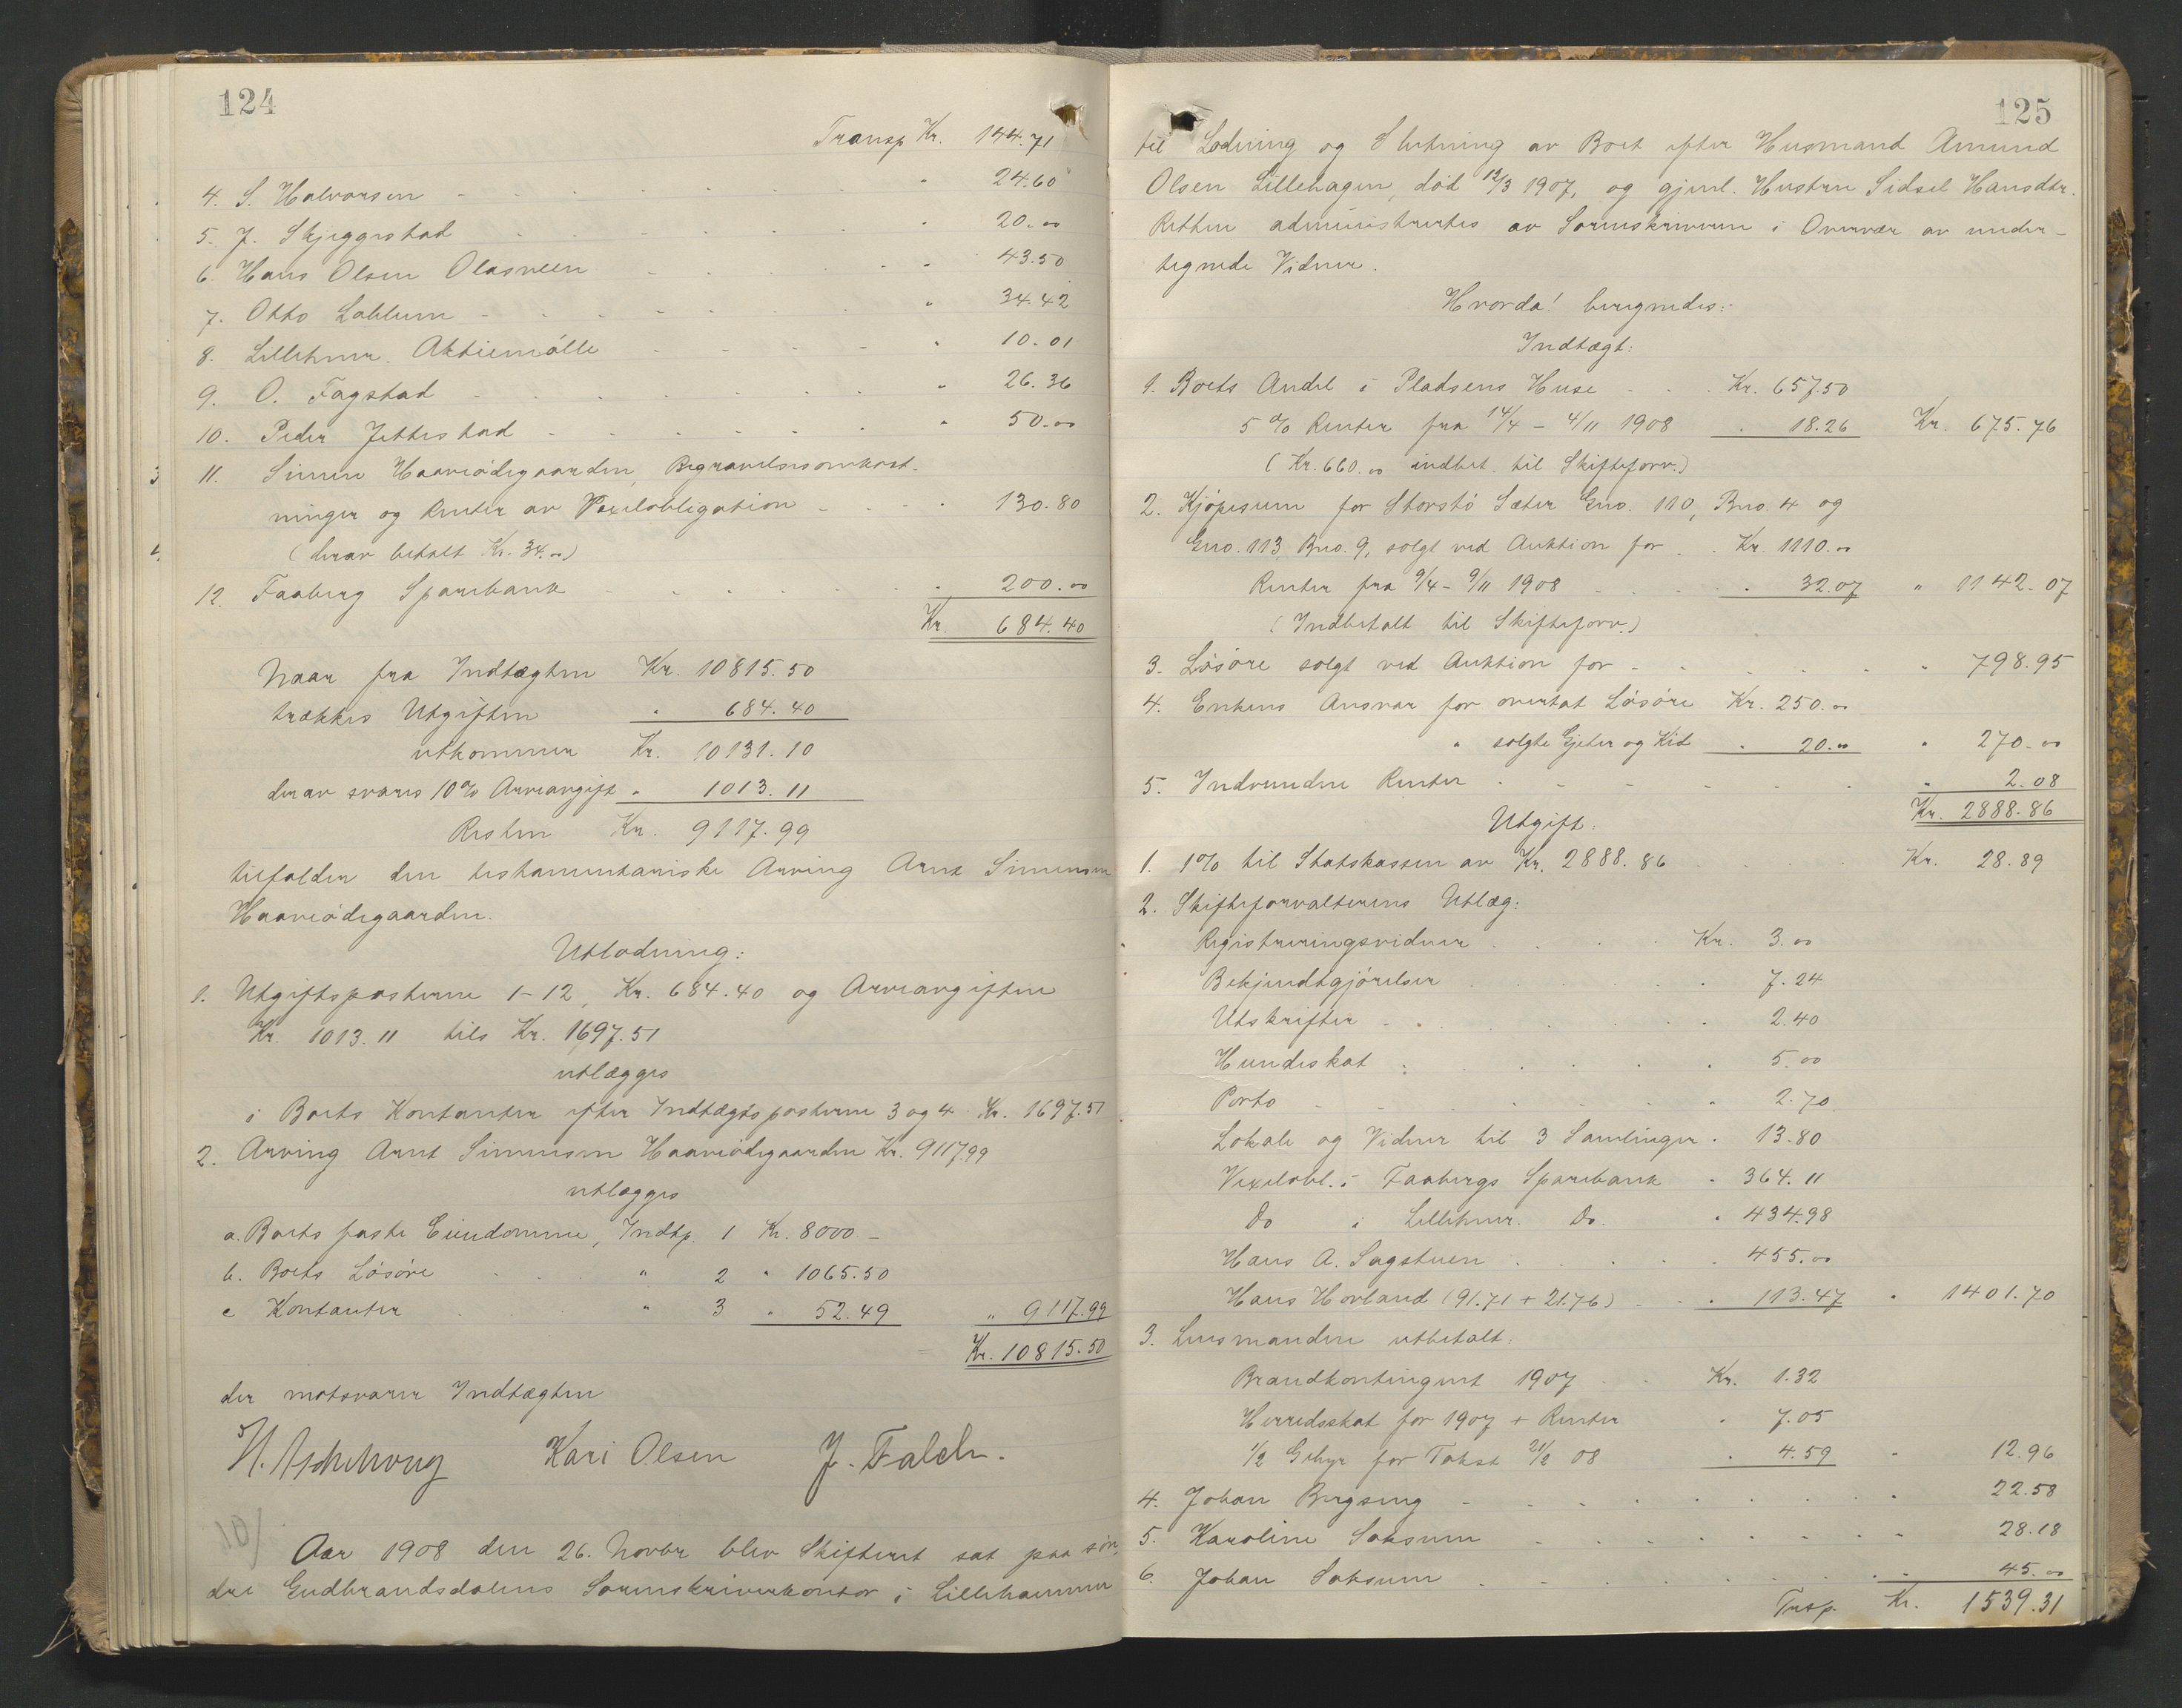 124
Transp Kr. 144.71
4. S. Halvorsen - " 24.60
5. J. Skjeggestad " 20.00
6. Hans Olsen Olasveen - " 43.50
7. Otto Løkkum - " 34.42
8. Lillehmr. Aktiemølle - " 10.01
9. O. Fagstad - " 26.36
10. Peder Jettestad - " 50.00
11. Simen Haaveødegaarden, Begravelsesomkost-
ninger og Renter av Vexelobligation - " 130.80
(herav betalt Kr. 34.00)
12. Faaberg Sparebank " 200.00
Kr. 684.40
Naar fra Indtægten Kr. 10815.50
trækkes Utgiften " 684.40
utkommer Kr. 10131.10
derav svares 10% Arveavgift " 1013.11
Resten Kr. 9117.99
tilfalder den testamentariske Arving Arnt Simensen
Haaveødegaarden.
Utlodning:
1. Utgiftsposterne 1-12, Kr. 684.40 og Arveavgiften
Kr. 1013.11 tils Kr. 1697.51
utlægges
i Boets Kontanter efter Indtægtsposterne 3 og 4 Kr. 1697.51
2. Arving Arnt Simensen Haaveødegaarden Kr. 9117.99
utlægges
a. Boets faste Eiendomme, Indtp. 1 Kr. 8000 -
b. Boets Løsøre " 2 " 1065.50
c Kontanter " 3 " 52.49 " 9117.99
Kr. 10815.50
der motsvarer Indtægten
H. Aschehoug Kari Olsen J. Falch.
10/
Aar 1908 den 26. Novbr blev Skifteret sat paa søn-
dre Gudbrandsdalens Sorenskriverkontor i Lillehammer
125
til Lodning og Slutning av Boet efter Husmand Amund
Olsen Lillehagen, død 12/3 1907, og gjenl. Hustru Sidsel Hansdtr.
Retten administrertes av Sorenskriveren i Overvær av under-
tegnede Vidner.
Hvorda! beregnedes:
Indtægt:
1. Boets Andel i Pladsens Huse - Kr. 657.50
5% Renter fra 14/4 - 4/11 1908 " 18.26 Kr. 675.76
(Kr. 660.00 indbet. til Skifteforv.)
2. Kjøpesum for Storstø Sæter Gno. 110, Bno. 4 og
Gno. 113, Bno. 9, solgt ved Auktion for Kr. 1110.00
Renter fra 9/4 - 9/11 1908 " 32.07 " 1142.07
(Indbetalt til Skifteforv.)
3. Løsøre solgt ved Auktion for - " 798.95
4. Enkens Ansvar for overtat Løsøre Kr. 250.00
" solgte Gjeter og Kid " 20.00 " 270.00
5. Indvundne Renter - " 2.08
Kr. 2888.86
Utgift:
1. 1% til Statskassen av Kr. 2888.86 Kr. 28.89
2. Skifteforvalterens Utlæg:
Registreringsvidner Kr. 3.00
Bekjendtgjørelser " 7.24
Utskrifter " 2.40
Hundeskat " 5.00
Porto " 2.70
Lokale og Vidner til 3 Samlinger " 13.80
Vexelobl. i Faabergs Sparebank " 364.11
Do i Lillehmr. Do. " 434.98
Hans A. Sagstuen " 455.00
Hans Hovland (91.71 + 21.76) " 113.47 " 1401.70
3. Lensmanden utbetalt:
Brandkontingent 1907 Kr. 1.32
Herredsskat for 1907 + Renter " 7.05
1/2 Gebyr for Takst 21/2 08 " 4.59 " 12.96
4. Johan Bergseng - " 22.58
5. Karoline Saksum " 28.18
6. Johan Saksum " 45.00
Trsp. Kr. 1539.31